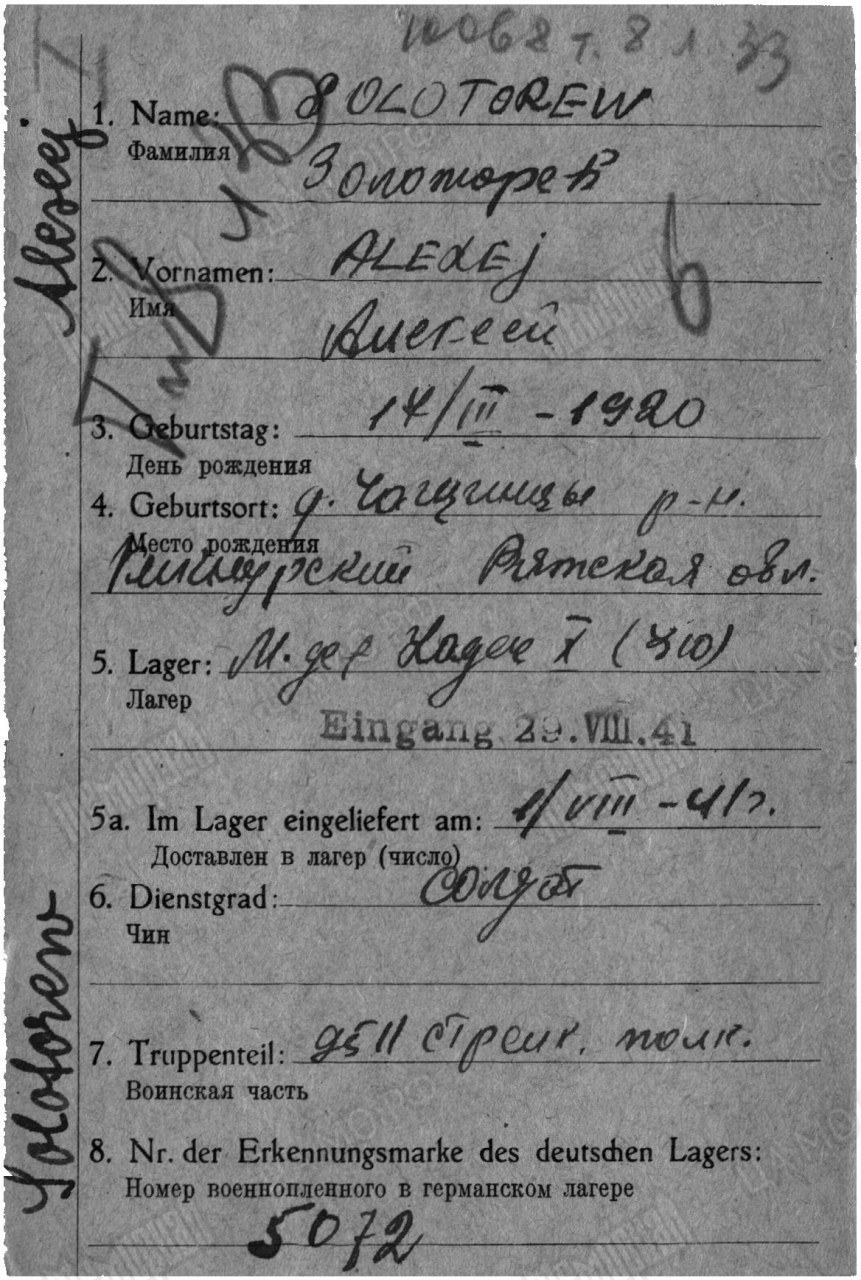 10068 т. 8 л. 33
Alexej
Solotorew
1. Name: SOLOTOREW
Фамилия
Золоторев
2. Vornamen: ALEXEj
Имя
Алексей
3. Geburtstag: 14/III - 1920
День рождения
4. Geburtsort: д. р-н.
Место рождения
Вятская обл.
5. Lager: X
Лагер
Eingang 29.VIII.41
5a. Im Lager eingeliefert am: 1/VIII - 41г.
Доставлен в лагер (число)
6. Dienstgrad: солдат
Чин
7. Truppenteil: стрелк. полк.
Воинская часть
8. Nr. der Erkennungsmarke des deutschen Lagers:
Номер военнопленного в германском лагере
5072